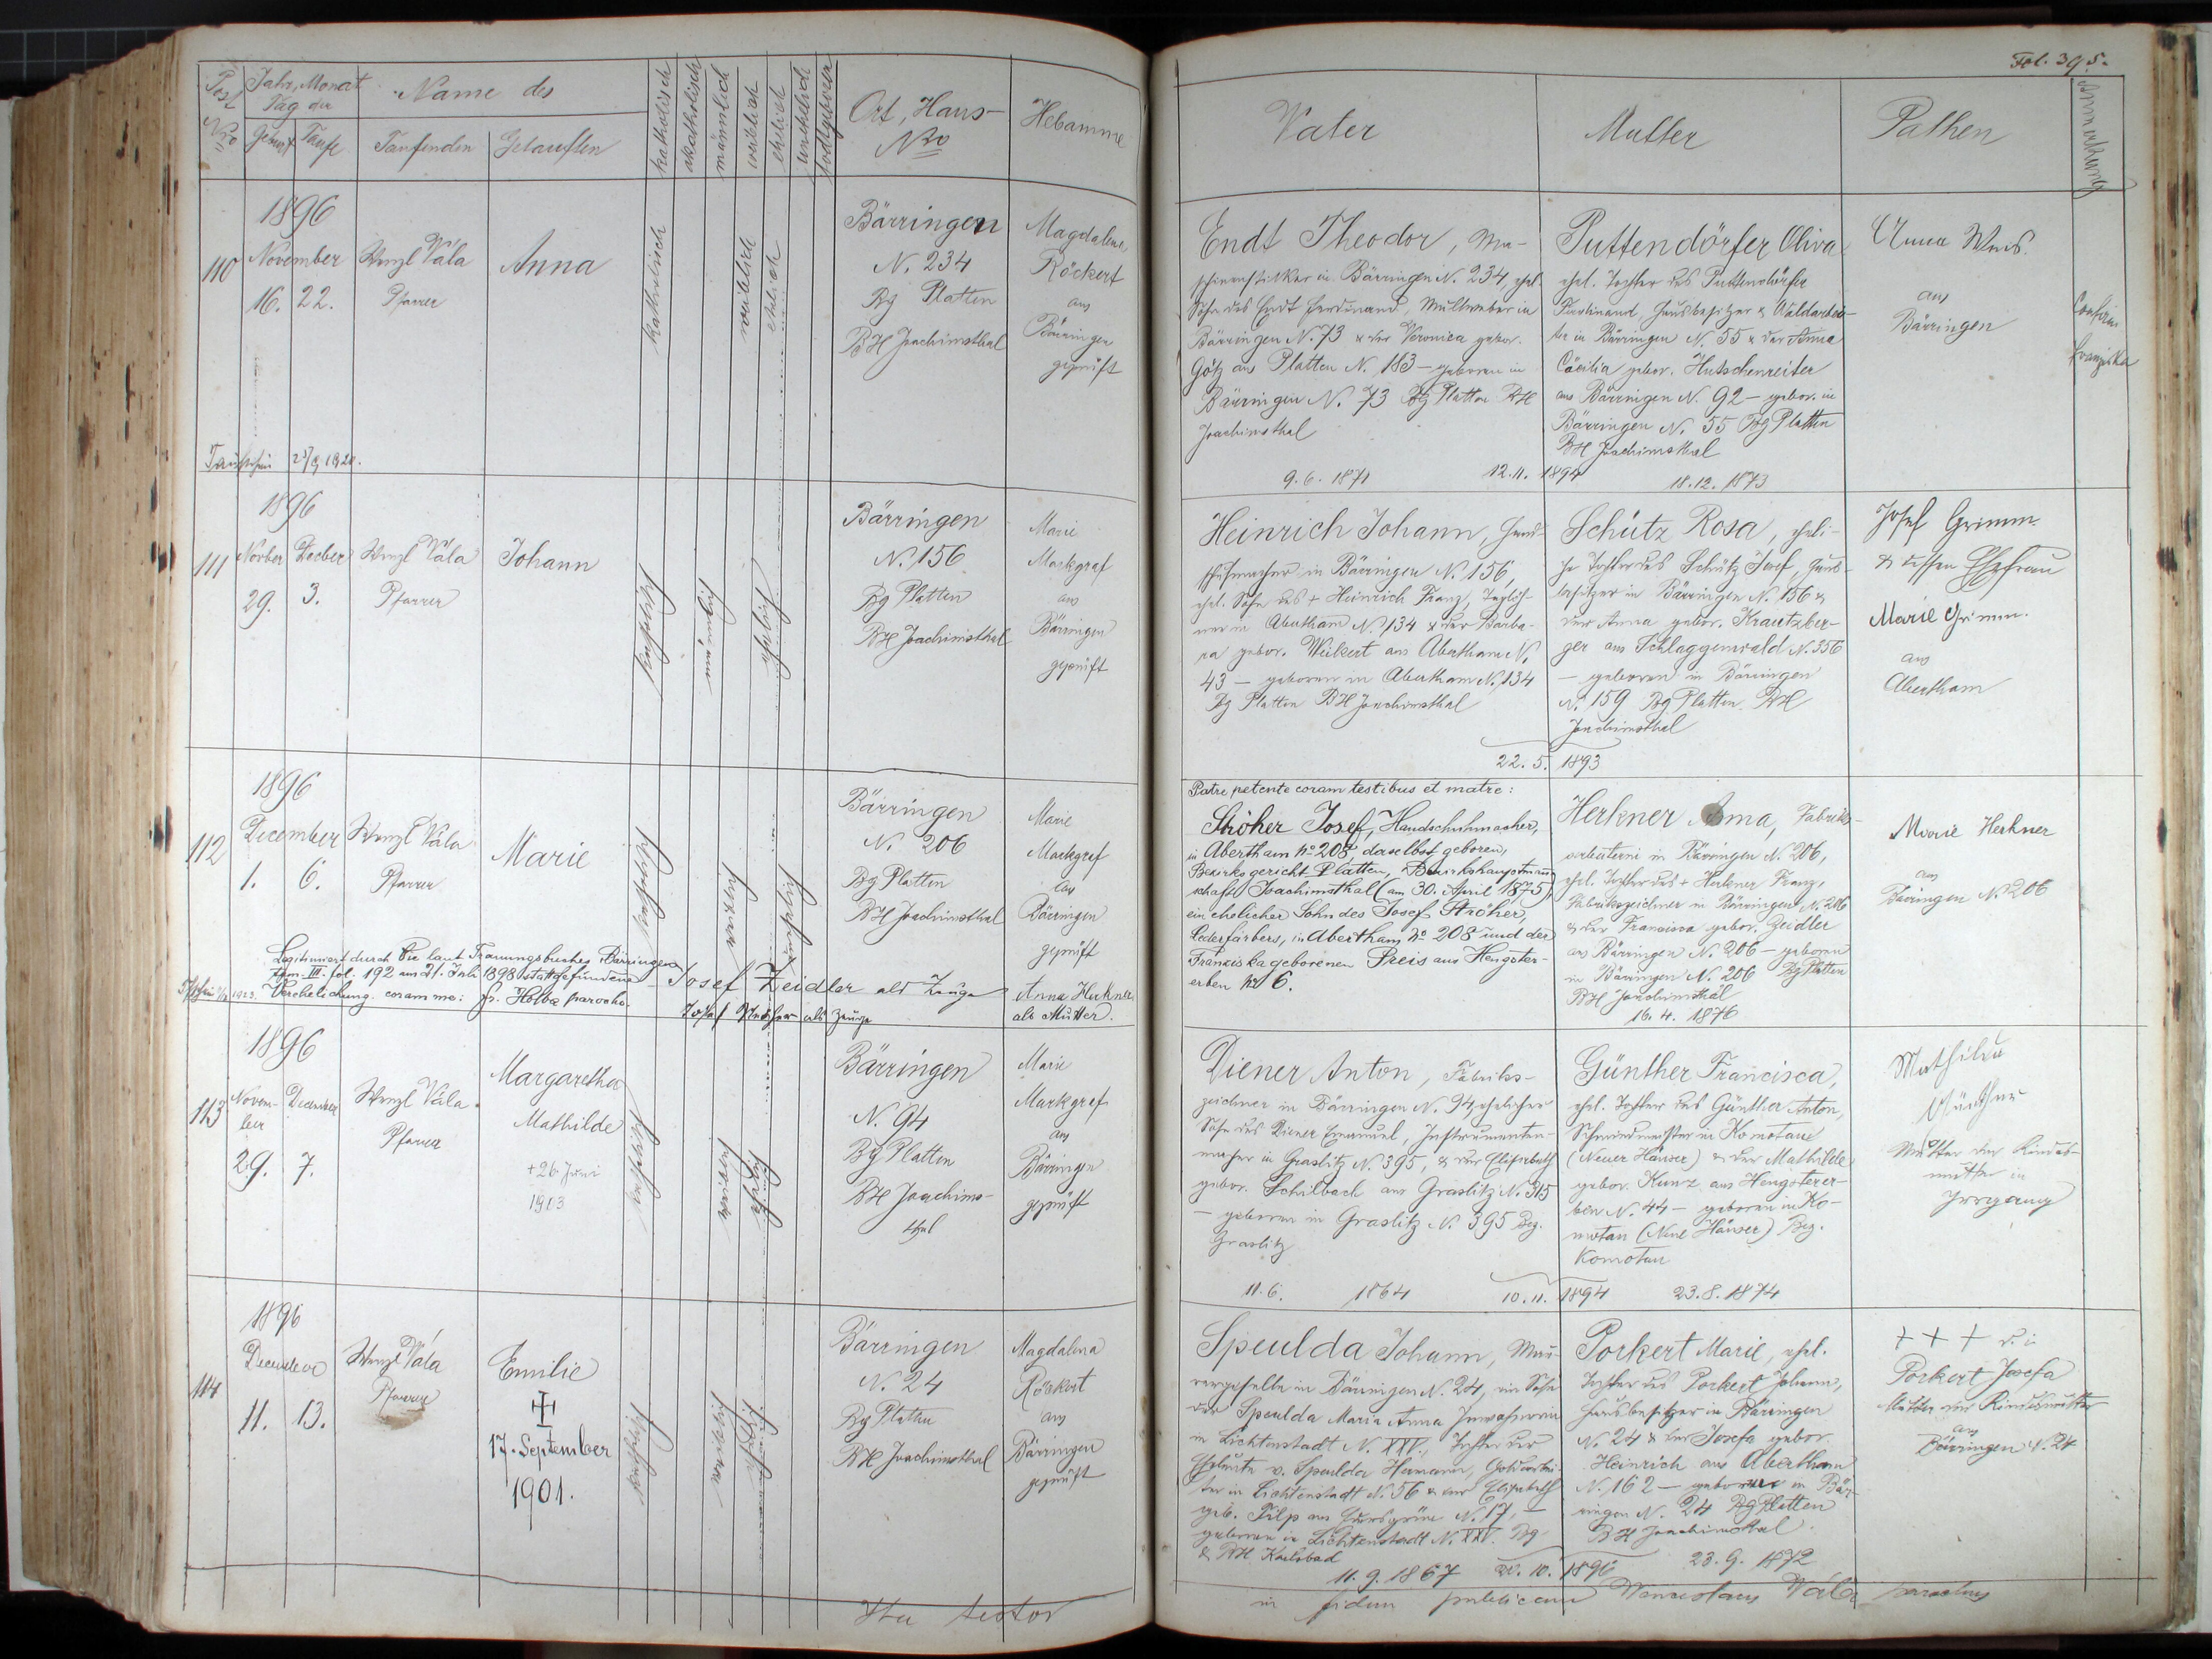 Fol. 395.
Post Nro
Jahr, Monat
Tag der
Geburt
Taufe
Name des
Taufenden
Getauften
katholisch
akatholisch
männlich
weiblich
ehelich
unehelich
todtgeboren
Ort, Haus-
Nro
Hebamme
Vater
Mutter
Pathen
Anmerkung
110
1896
November
16. 22.
Wenzl Vála
Pfarrer
Anna
katholisch
weiblich
ehelich
Bärringen
N. 234
Bg Platten
BH Joachimsthal
Magdalena
Röckert
aus
Bärringen
geprüft
Endt Theodor, Ma-
schinensticker in Bärringen N. 234, ehel.
Sohn des Endt Ferdinand, in
Bärringen N. 73 & der Veronica gebor.
Götz aus Platten N. 183 – geboren in
Bärringen N. 73 Bg Platten BH
Joachimsthal
9.6.1871
12.11.1894
Puttendörfer Oliva
ehel. Tochter des Puttendörfer
Ferdinand, Hausbesitzer & Waldarbei-
ter in Bärringen N. 55 & der Anna
Cäcilia gebor. Hutschenreiter
aus Bärringen N. 92 – gebor. in
Bärringen N. 55 Bg Platten
BH Joachimsthal
18.12.1873
Anna
aus
Bärringen
Franziska
Taufschein
111
1896
Novber Decber
29. 3.
Wenzl Vála
Pfarrer
Johann
katholisch
männlich
ehelich
Bärringen
N. 156
Bg Platten
BH Joachimsthal
Marie
Markgraf
aus
Bärringen
geprüft
Heinrich Johann, Hand-
schuhmacher in Bärringen N. 156,
ehel. Sohn des + Heinrich Franz, Taglöh-
ner in Abertham N. 134 & der Barba-
ra gebor. Weikert aus Abertham N.
43 – geboren in Abertham N. 134
Bg Platten BH Joachimsthal
22.5.1893
Schütz Rosa, eheli-
che Tochter des Schütz Josef, Haus-
besitzer in Bärringen N. 156 &
der Anna gebor. Krautzber-
ger aus Schlaggenwald N. 356
– geboren in Bärringen
N. 159 Bg Platten BH
Joachimsthal
Josef Grimm
& dessen Ehefrau
Marie Grimm.
aus
Abertham
112
1896
December
1. 6.
Wenzl Vála
Pfarrer
Marie
katholisch
weiblich
unehelich
Bärringen
N. 206
Bg Platten
BH Joachimsthal
Marie
Markgraf
aus
Bärringen
geprüft
Patre petente coram testibus et matre:
Ströher Josef, Handschuhmacher,
in Abertham No 208, daselbst geboren,
Bezirksgericht Platten, Bezirkshauptmann-
schaft Joachimsthal (am 30. April 1875),
ein ehelicher Sohn des Josef Ströher,
Lederfärbers, in Abertham No 208 und der
Franziska geborenen Preis aus Hengster-
erben No 6.
Herkner Anna, Fabriks-
arbeiterin in Bärringen N. 206,
ehel. Tochter des + Herkner Franz,
Fabrikszeichner in Bärringen N. 206
& der Francisca gebor. Zeidler
aus Bärringen N. 206 – geboren
in Bärringen N. 206 Bg Platten
BH Joachimsthal
16.4.1876
Marie Herkner
aus
Bärringen N. 206
Legitimiert durch die laut Trauungsbuches Bärringen
tom. III. fol. 192 am 21. Juli 1898 stattgefundene
Verehelichung. coram me: Fr. Holba parocho.
Josef Zeidler als Zeuge
Josef als Zeuge
Anna Herkner
als Mutter.
113
1896
Novem-
ber
December
29. 7.
Wenzl Vála
Pfarrer
Margaretha
Mathilde
+ 26. Juni
1913
katholisch
weiblich
ehelich
Bärringen
N. 94
Bg Platten
BH Joachims-
thal
Marie
Markgraf
aus
Bärringen
geprüft
Diener Anton, Fabriks-
zeichner in Bärringen N. 94, ehelicher
Sohn des Diener Emanuel, Instrumenten-
macher in Graslitz N. 395, & der Elisabeth
gebor. Schilbach aus Graslitz N. 315
– geboren in Graslitz N. 395 Bez.
Graslitz
11.6. 1864
10.11.1894
Günther Francisca,
ehel. Tochter des Günther Anton,
Schneidermeister in Komotau
(Neuer Häuser) & der Mathilde
gebor. Kunz aus Hengsterer-
ben N. 44 – geboren in Ko-
motau (Neue Häuser) Bez.
Komotau
23.8.1874
Mathilde
Günther
Mutter der Kindes-
mutter in
Irrgang
114
1896
December
11. 13.
Wenzl Vála
Pfarrer
Emilie
17. September
1901.
katholisch
weiblich
ehelich
Bärringen
N. 24
Bg Platten
BH Joachimsthal
Magdalena
Röckert
aus
Bärringen
geprüft
Speulda Johann, Mau-
rergeselle in Bärringen N. 24, ein Sohn
der Speulda Maria Anna Inwohnerin
in Lichtenstadt N. XXV., Tochter der
Eheleute v. Speulda Hermann,
in Lichtenstadt N. 56 & der Elisabeth
geb. Filp aus N. 17, –
geboren in Lichtenstadt N. XXV. Bg
& BH Karlsbad
11.9.1867
10.1896
Porkert Marie, ehel.
Tochter des Porkert Johann,
Hausbesitzer in Bärringen
N. 24 & der Josefa gebor.
Heinrich aus Abertham
N. 162 – geboren in Bär-
ringen N. 24 Bg Platten
BH Joachimsthal.
23.9.1872
+++ d. i.
Porkert Josefa
Mutter der Kindesmutter
aus
Bärringen N. 24
Ita testor
in fidem publicam Wenceslaus Vála parochus